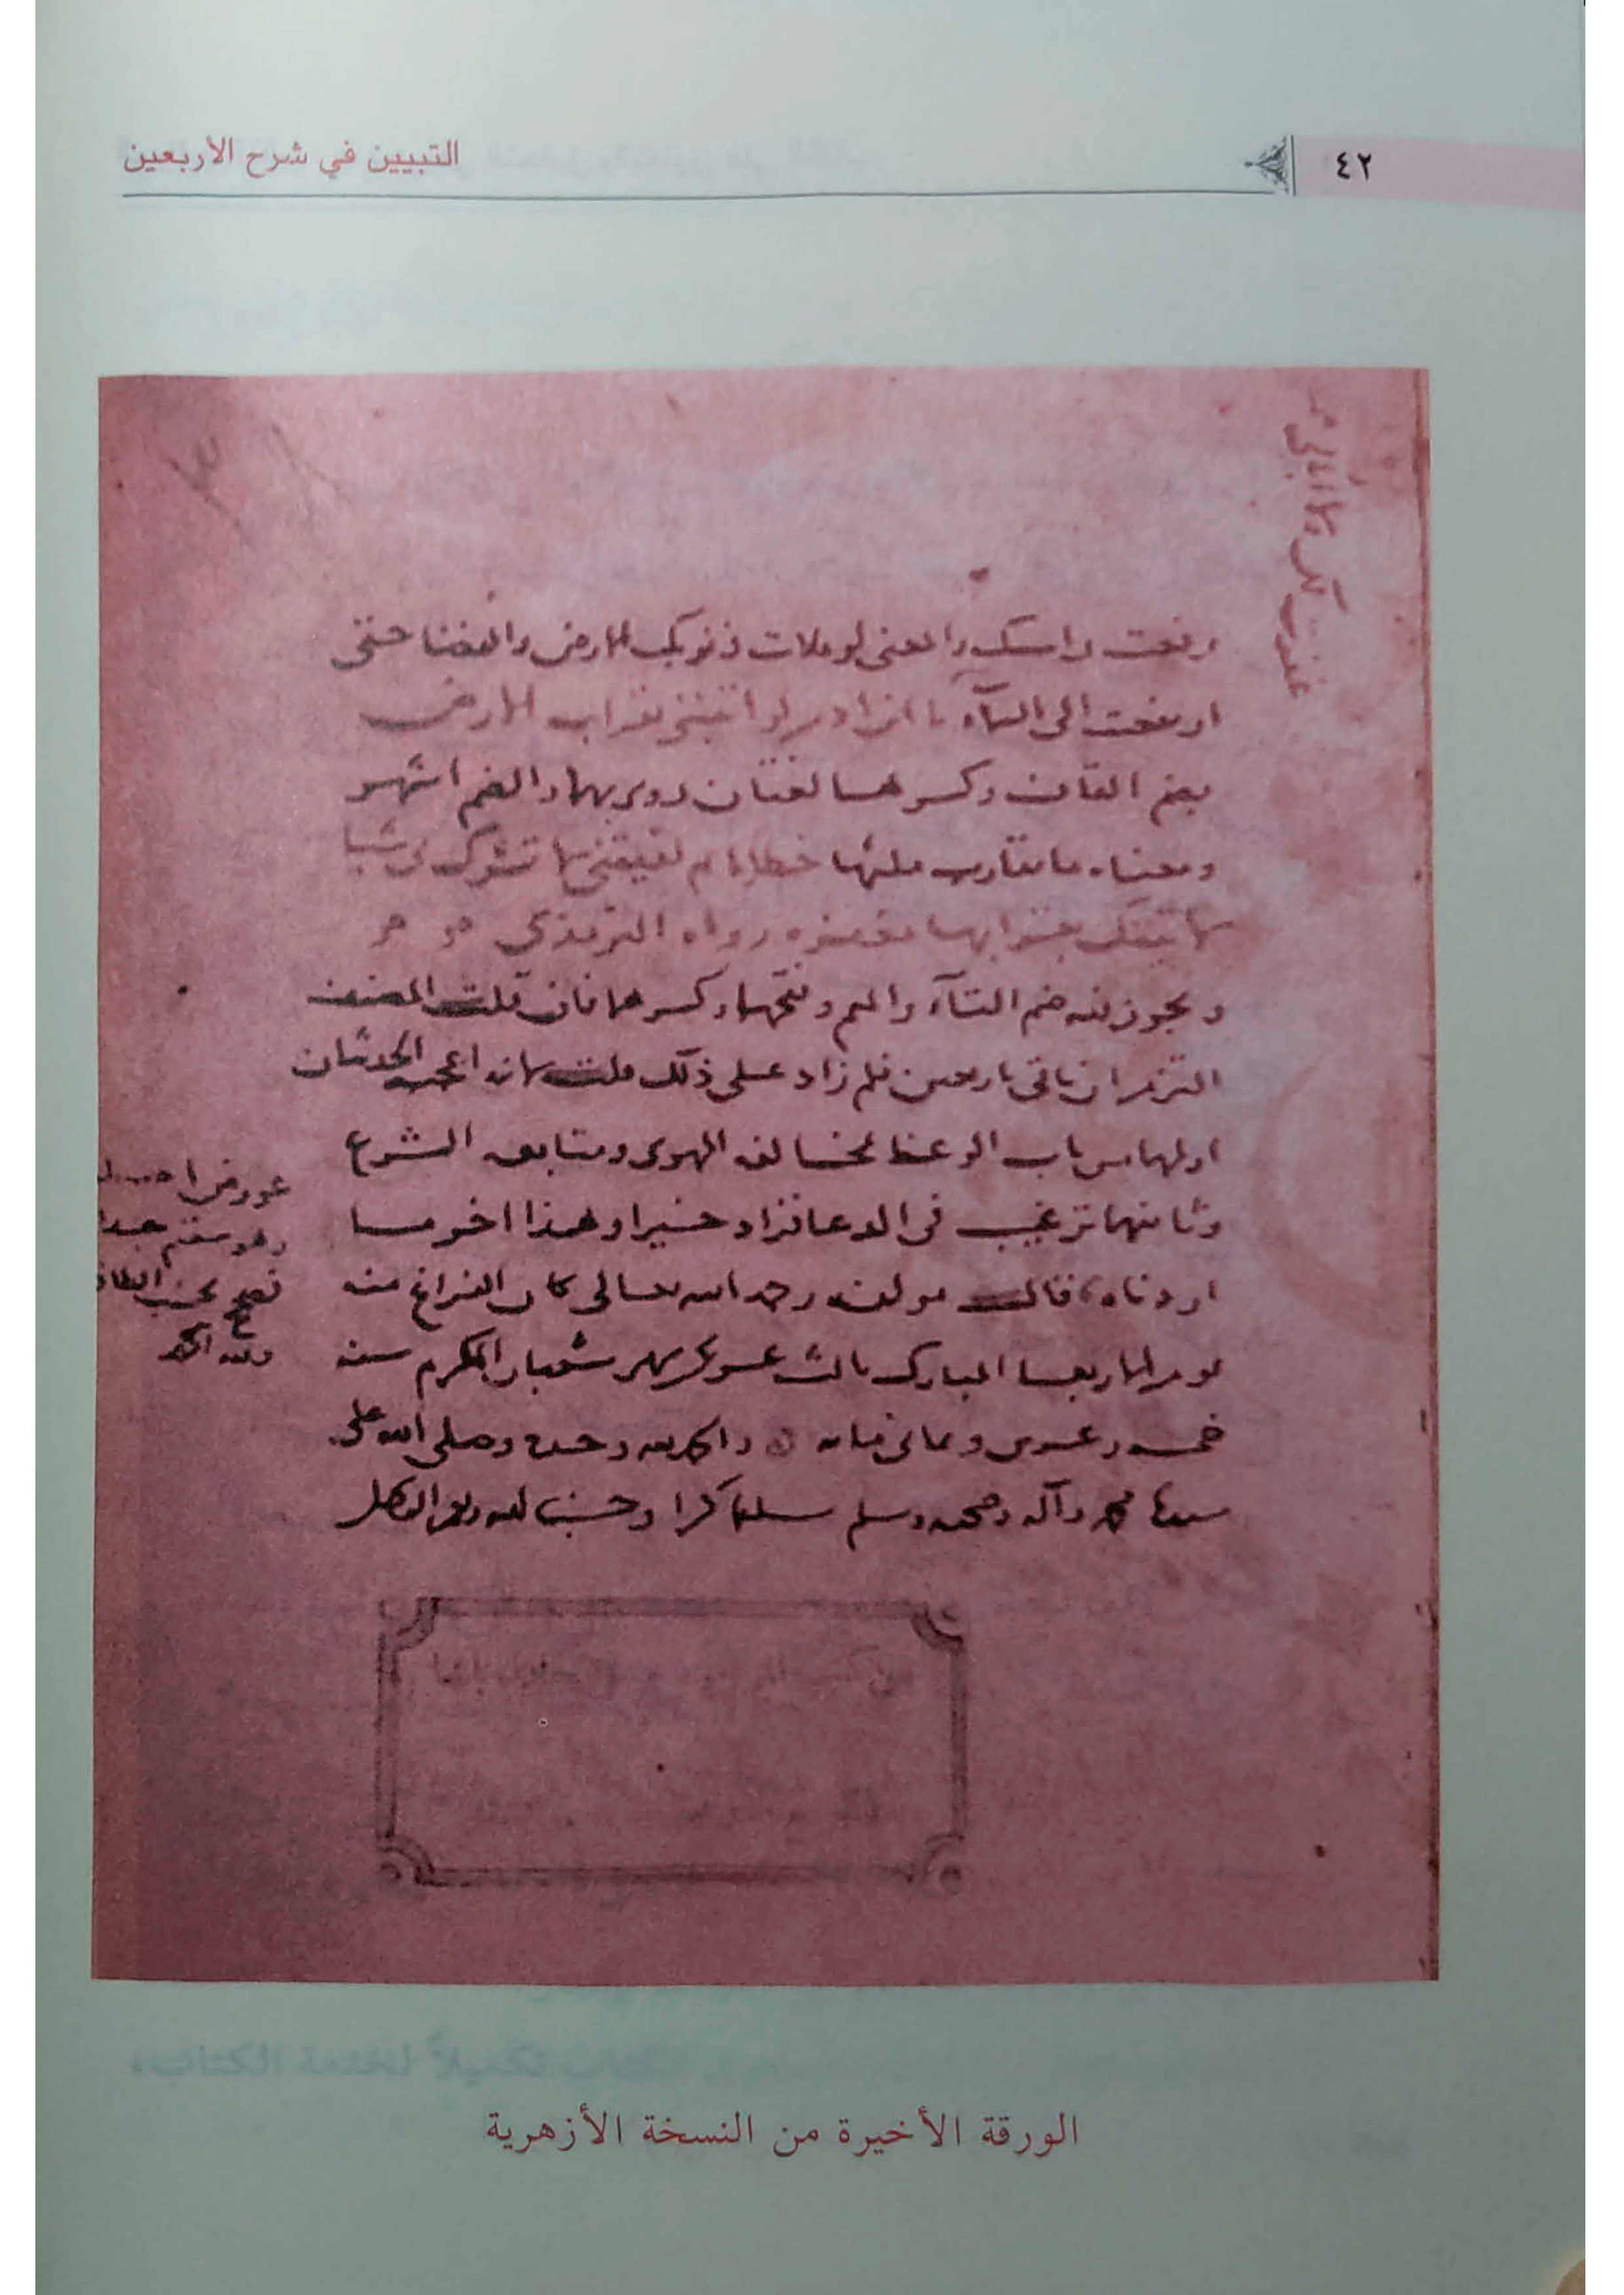 ٤٢
التبيين في شرح الأربعين
رفعت راسك والمعنى لو ملات ذنوبك الارض والفضا حتى
ارتفعت الى السمآء يا ابن ادم لو اتيتني بقراب الارض
بضم القاف وكسرها لغتان روي بهما والضم اشهر
ومعناه ما يقارب ملئها خطايا ثم لقيتني لا تشرك بي شيا
لاتيتك بقرابها مغفره رواه الترمذي
ويجوز فيه ضم التآء والميم وفتحهما وكسرهما فان قلت المصنف
التزم ان ياتي باربعين فلم زاد على ذلك قلت لانه اعجبه الحديثان
اولهما من باب الوعظ لمخالفه الهوى ومتابعه الشرع
وثانيهما ترغيب في الدعا فزاد خيرا وهذا اخر ما
اردناه قال مولفه رحمه الله تعالى كان الفراغ منه
يوم الاربعا المبارك ثالث عشري شهر شعبان المكرم سنه
خمسه وعشرين وثماني مايه والحمد لله وحده وصلى الله على
سيدنا محمد وآله وصحبه وسلم تسليما كثيرا وحسبنا الله ونعم الوكيل
عورض
وهو سقيم جدا
فصح بحسب الطاقة
ولله الحمد
الورقة الأخيرة من النسخة الأزهرية